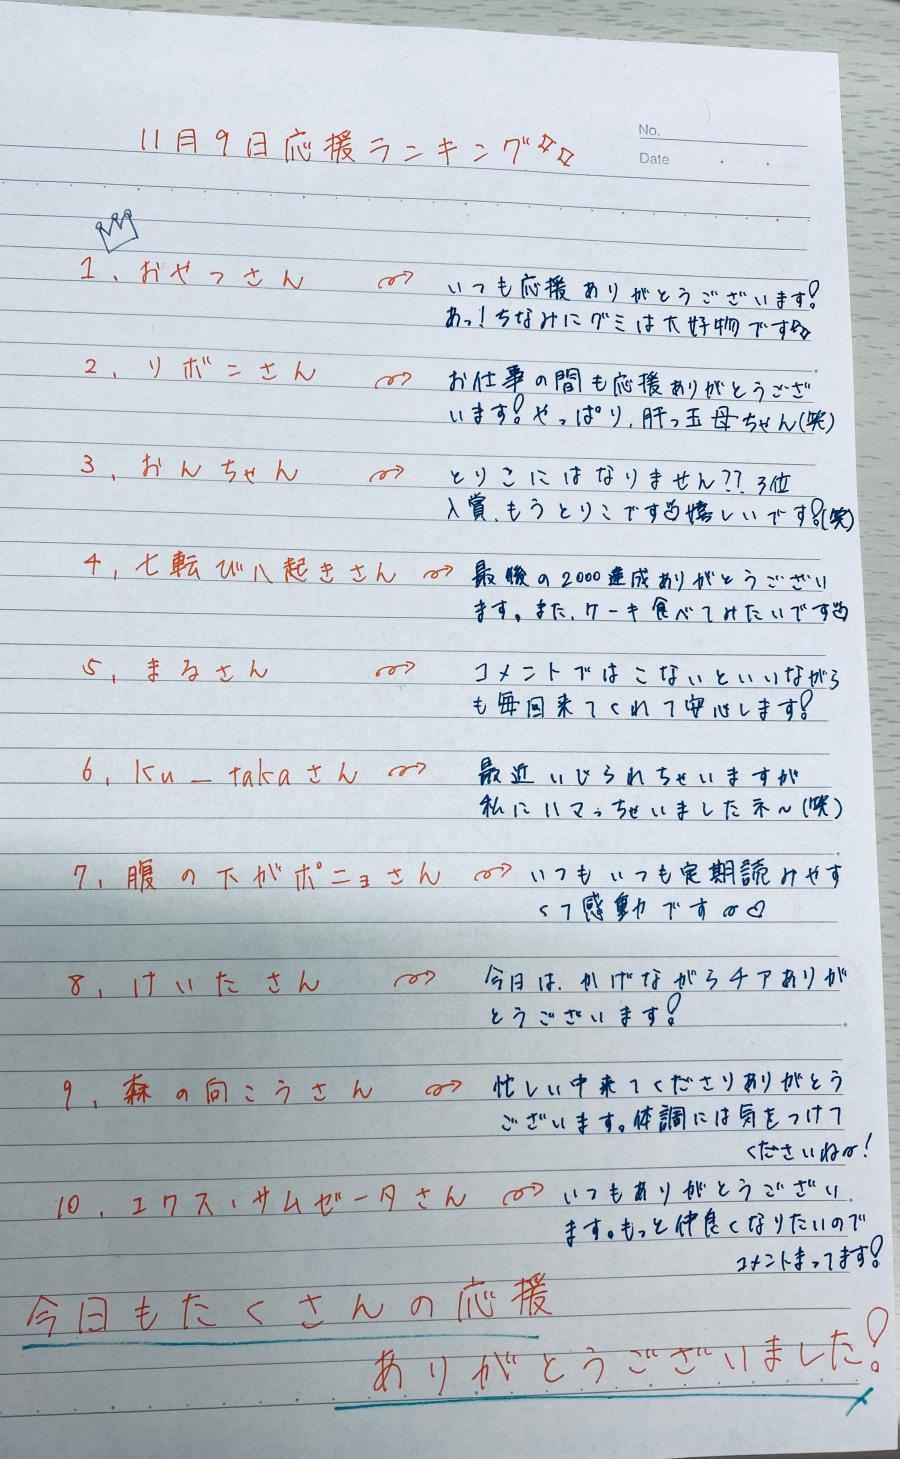 11月9日応援ランキング☆☆
No.
Date
1、おやっさん → いつも応援ありがとうございます!
あっ!ちなみにグミは大好物です☆
2、リボンさん → お仕事の間も応援ありがとうござ
います!やっぱり、肝っ玉母ちゃん(笑)
3、おんちゃん → とりこにはなりません??3位
入賞、もうとりこです 嬉しいです!(笑)
4、七転び八起きさん → 最後の2000達成ありがとうござい
ます。また、ケーキ食べてみたいです
5、まるさん → コメントではこないといいながら
も毎回来てくれて安心します!
6、ku_takaさん → 最近いじられちゃいますが
私にハマっちゃいましたネ~(笑)
7、腹の下がポニョさん → いつもいつも定期読みやす
くて感動です~♡
8、けいたさん → 今日は、かげながらチアありが
とうございます!
9、森の向こうさん → 忙しい中来てくださりありがとう
ございます。体調には気をつけて
くださいね~!
10、エクス・サムゼータさん → いつもありがとうござい
ます。もっと仲良くなりたいので
コメントまってます!
今日もたくさんの応援
ありがとうございました!